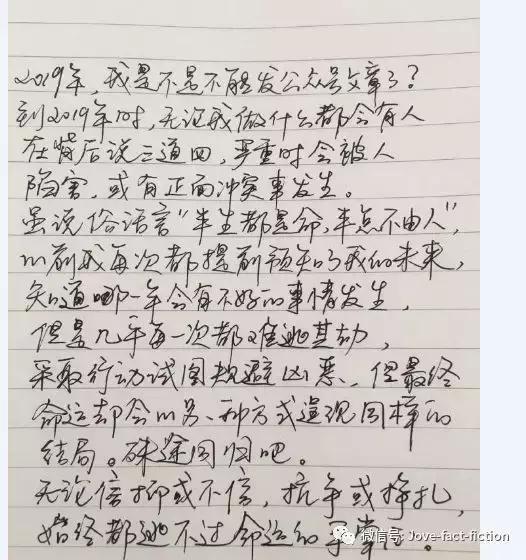 2019年,我是不是不能发公众号文章了?
到2019年时,无论我做什么都会有人
在背后说三道四,严重时会被人
陷害,或有正面冲突事发生。
虽说俗话言“半生都是命,半点不由人”,
以前我每次都提前预知了我的未来,
知道哪一年会有不好的事情发生,
但是几乎每一次都难逃其劫,
采取行动试图规避凶恶,但最终
命运却会以另一种方式造现同样的
结局。殊途同归吧。
无论信抑或不信,抗争或挣扎,
始终都逃不过命运的手掌心。
微信号: Jove-fact-fiction